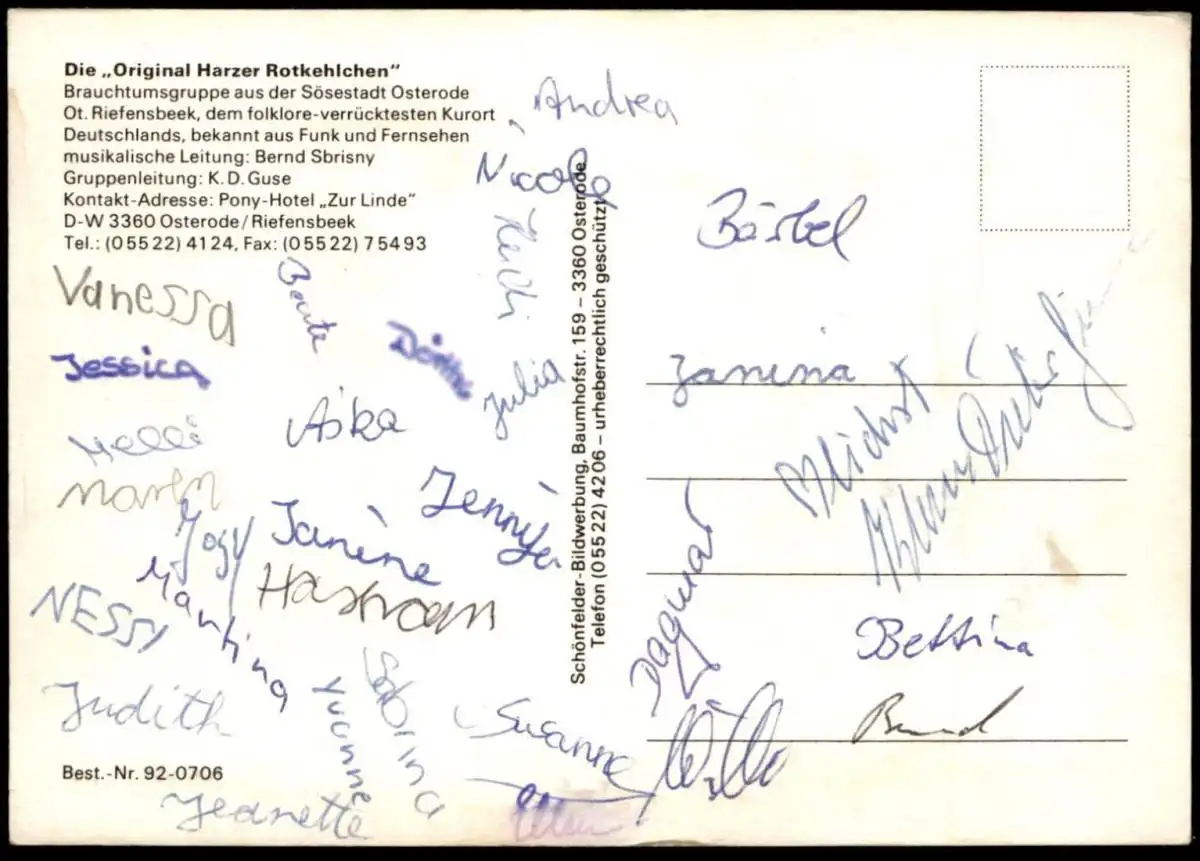 Die „Original Harzer Rotkehlchen“
Brauchtumsgruppe aus der Sösestadt Osterode
Ot. Riefensbeek, dem folklore-verrücktesten Kurort
Deutschlands, bekannt aus Funk und Fernsehen
musikalische Leitung: Bernd Sbrisny
Gruppenleitung: K. D. Guse
Kontakt-Adresse: Pony-Hotel „Zur Linde“
D-W 3360 Osterode/Riefensbeek
Tel.: (0 55 22) 41 24, Fax: (0 55 22) 7 54 93
Andrea
Nicole
Heidi
Bärbel
Vanessa
Beate
Dörthe
Jessica
Julia
Janina
Aika
Melli
Maren
Jenny
Yogy
Janine
Martina
NESSY
Dagmar
Bettina
Judith
Yvonne
Sabrina
Susanne
Bernd
Jeanette
Schönfelder-Bildwerbung, Baumhofstr. 159 – 3360 Osterode
Telefon (0 55 22) 42 06 – urheberrechtlich geschützt
Best.-Nr. 92-0706